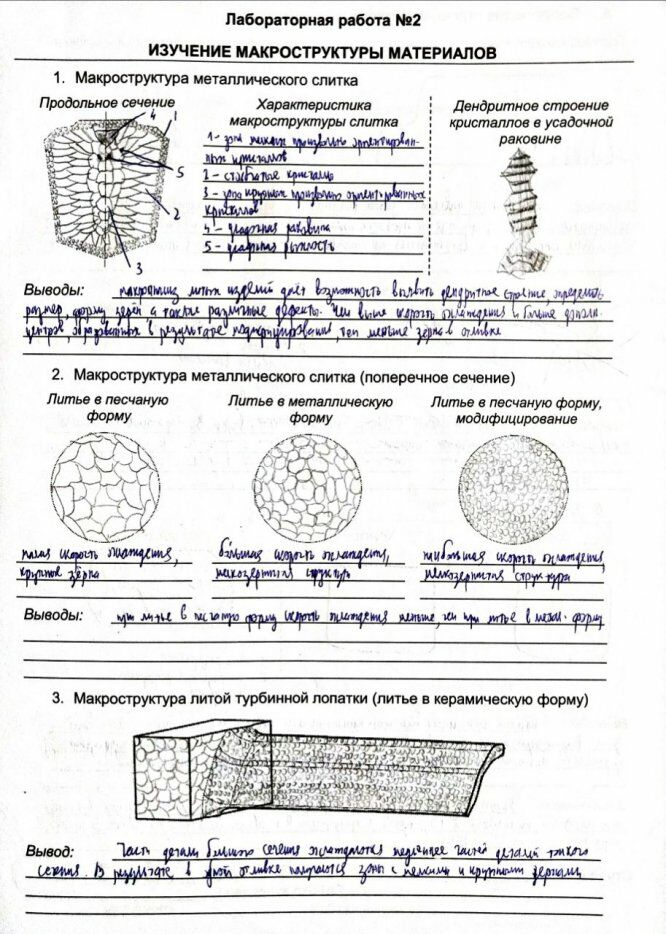 Лабораторная работа №2
ИЗУЧЕНИЕ МАКРОСТРУКТУРЫ МАТЕРИАЛОВ
1. Макроструктура металлического слитка
Продольное сечение
4
1
5
2
3
Характеристика
макроструктуры слитка
1 - зона мелких произвольно ориентирован-
ных кристаллов
2 - столбчатые кристаллы
3 - зона крупных произвольно ориентированных
кристаллов
4 - усадочная раковина
5 - усадочная рыхлость
Дендритное строение
кристаллов в усадочной
раковине
Выводы: макроанализ литых изделий даёт возможность выявить дендритное строение, определить
размер, форму зёрен а также различные дефекты. Чем выше скорость охлаждения и больше
центров, образованных в результате модифицирования, тем меньше зерна в отливке
2. Макроструктура металлического слитка (поперечное сечение)
Литье в песчаную
форму
малая скорость охлаждения,
крупные зёрна
Литье в металлическую
форму
большая скорость охлаждения,
мелкозернистая структура
Литье в песчаную форму,
модифицирование
скорость охлаждения,
мелкозернистая структура
Выводы: при литье в песчаную форму скорость охлаждения меньше, чем при литье в метал. форму
3. Макроструктура литой турбинной лопатки (литье в керамическую форму)
Вывод: Часть детали большого сечения охлаждаются медленнее частей деталей тонкого
сечения. В результате в отливке получаются зоны с мелкими и крупными зернами